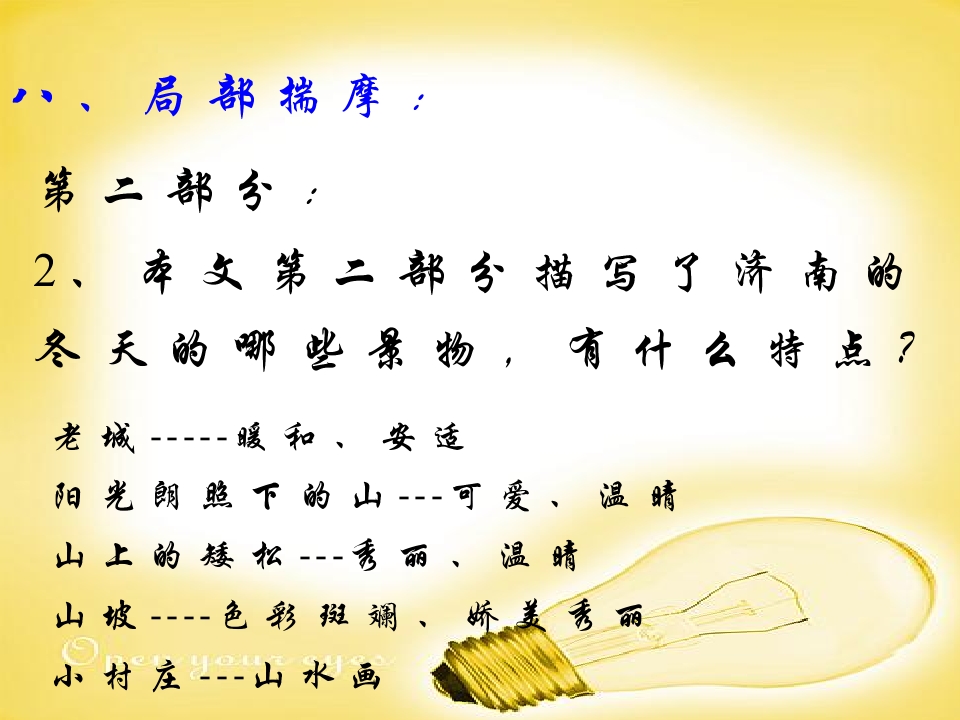 八、局部揣摩：
第二部分：
2、本文第二部分描写了济南的
冬天的哪些景物，有什么特点？
老城-----暖和、安适
阳光朗照下的山---可爱、温晴
山上的矮松---秀丽、温晴
山坡----色彩斑斓、娇美秀丽
小村庄---山水画
Open your eyes